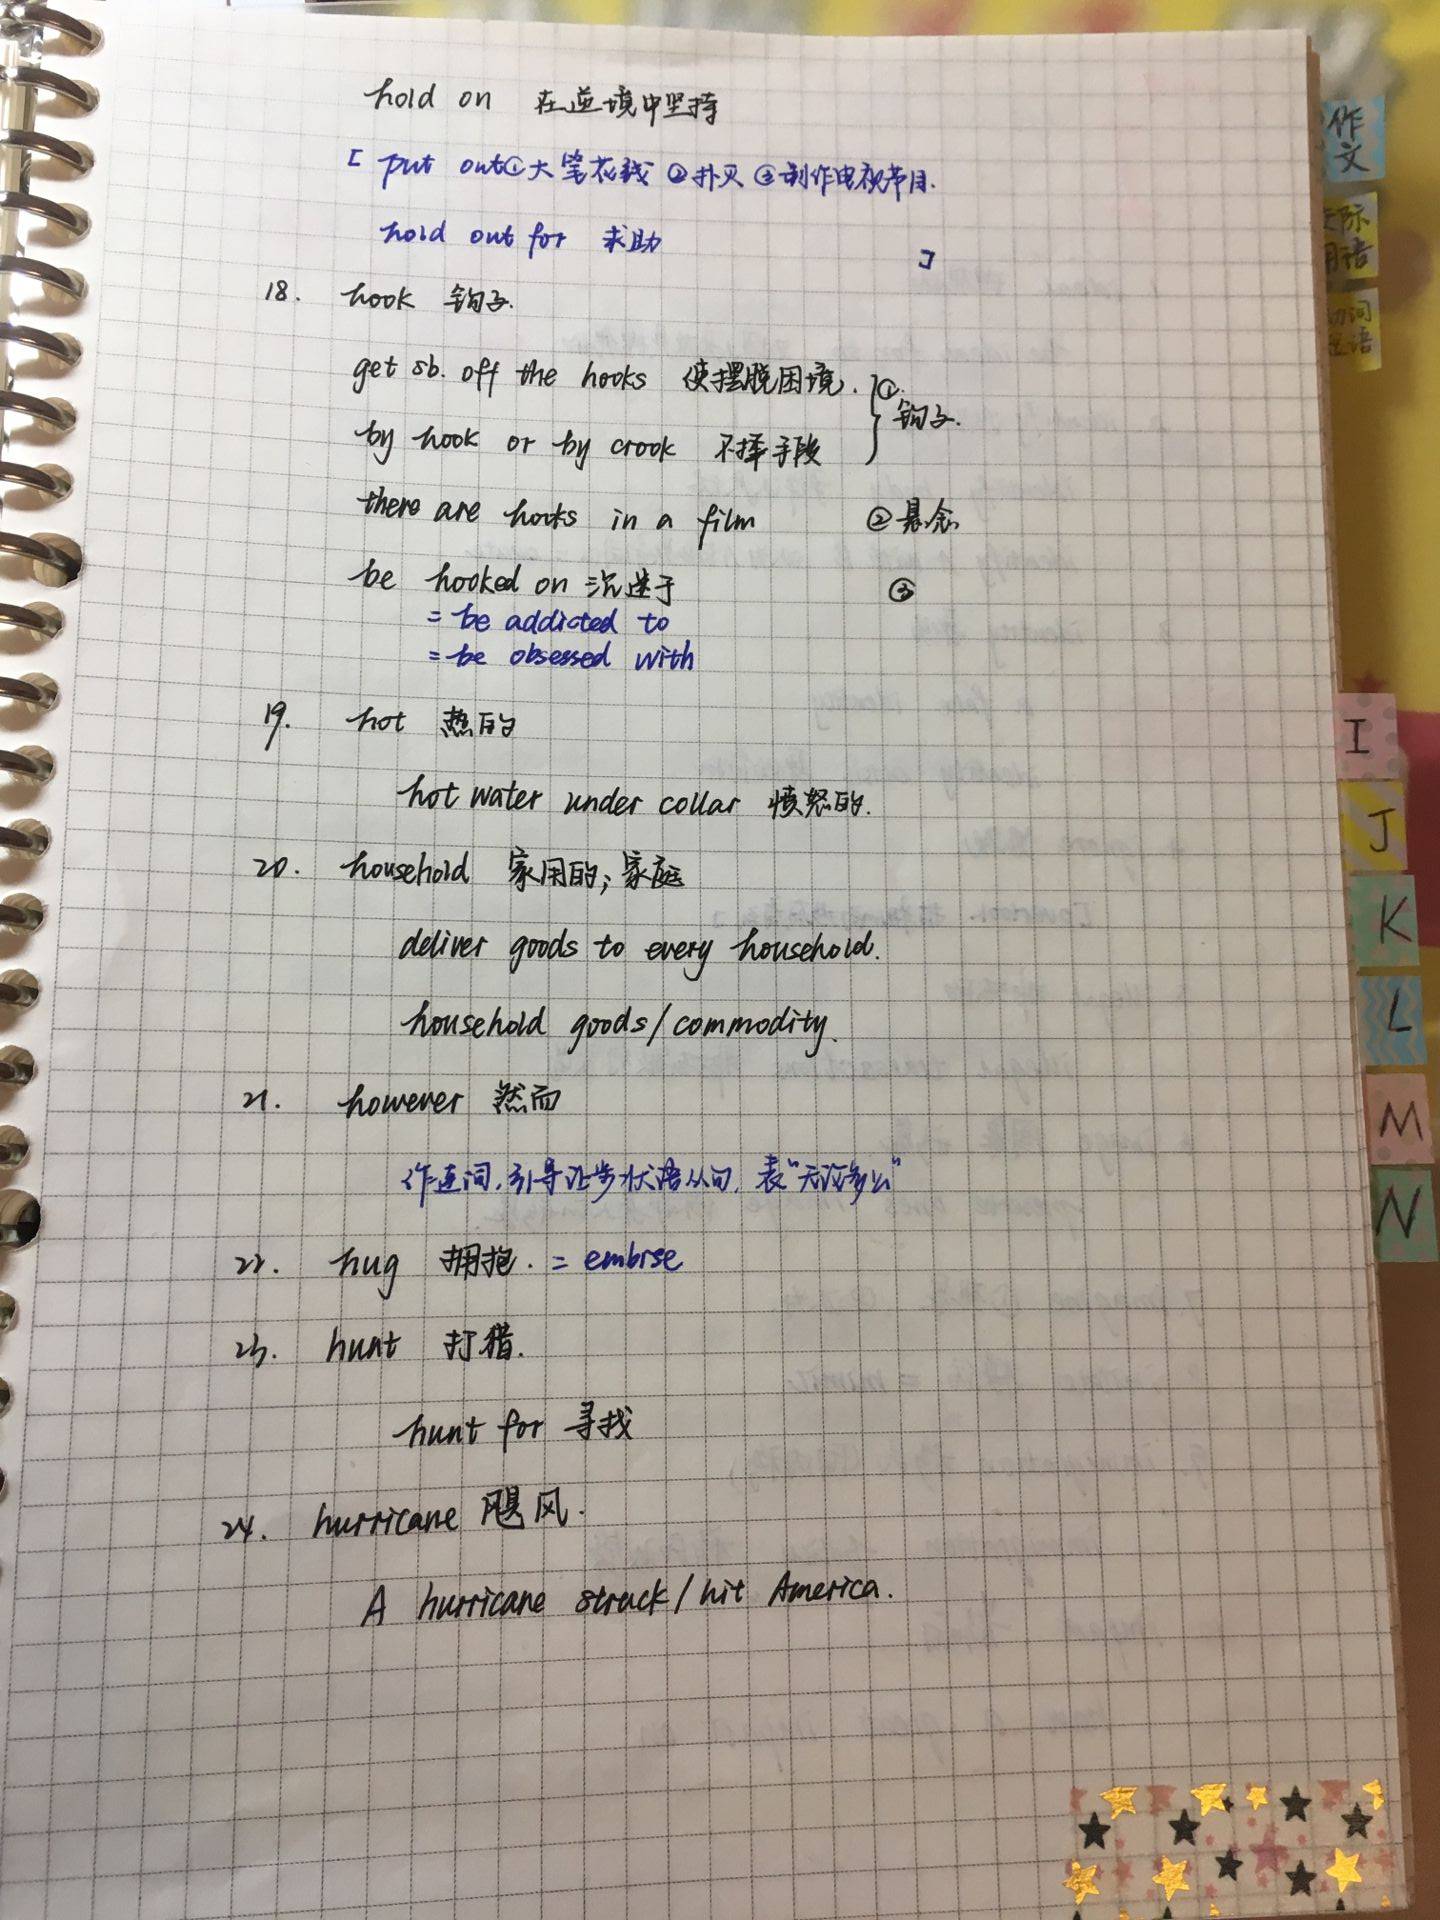 hold on 在逆境中坚持
[ put out①大笔花钱 ②扑灭 ③制作电视节目.
hold out for 求助 ]
18. hook 钩子.
get sb. off the hooks 使摆脱困境. } ①.
by hook or by crook 不择手段 钩子.
there are hooks in a film ②悬念
be hooked on 沉迷于 ③
= be addicted to
= be obsessed with
19. hot 热的
hot water under collar 愤怒的.
20. household 家用的; 家庭
deliver goods to every household.
household goods/commodity.
21. however 然而
作连词, 引导让步状语从句, 表"无论多么"
22. hug 拥抱. = embrse
23. hunt 打猎.
hunt for 寻找
24. hurricane 飓风.
A hurricane struck/hit America.
作文
际
用语
词
语
I
J
K
L
M
N